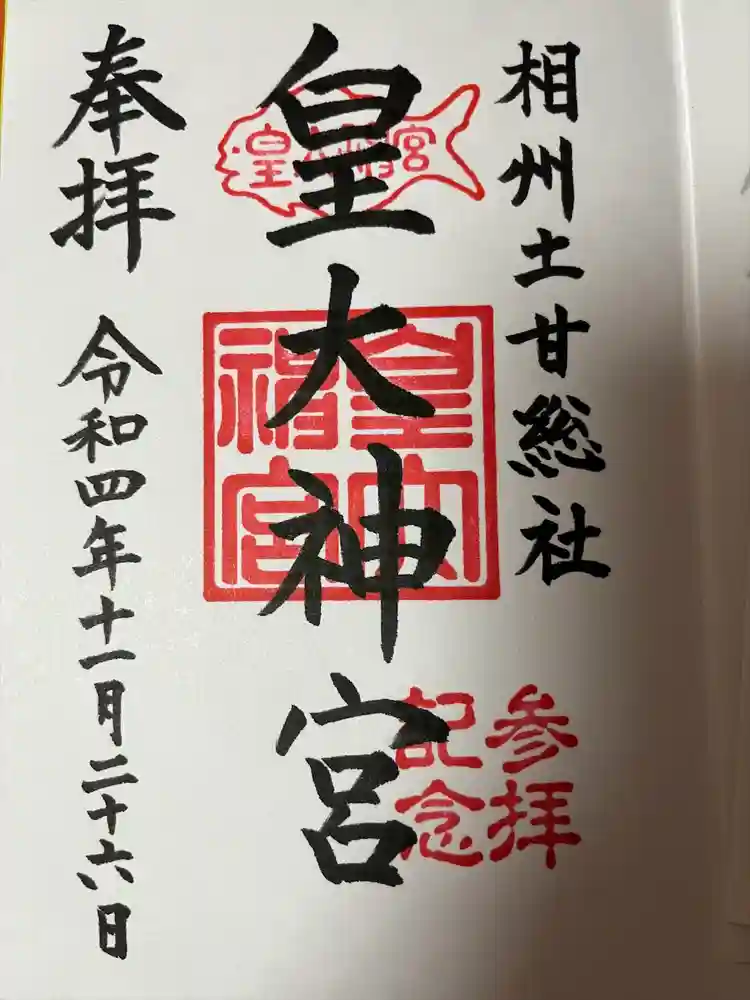 相州土甘総社
皇大神宮
皇大神宮
皇大神宮
参拝
記念
奉拝
令和四年十一月二十六日